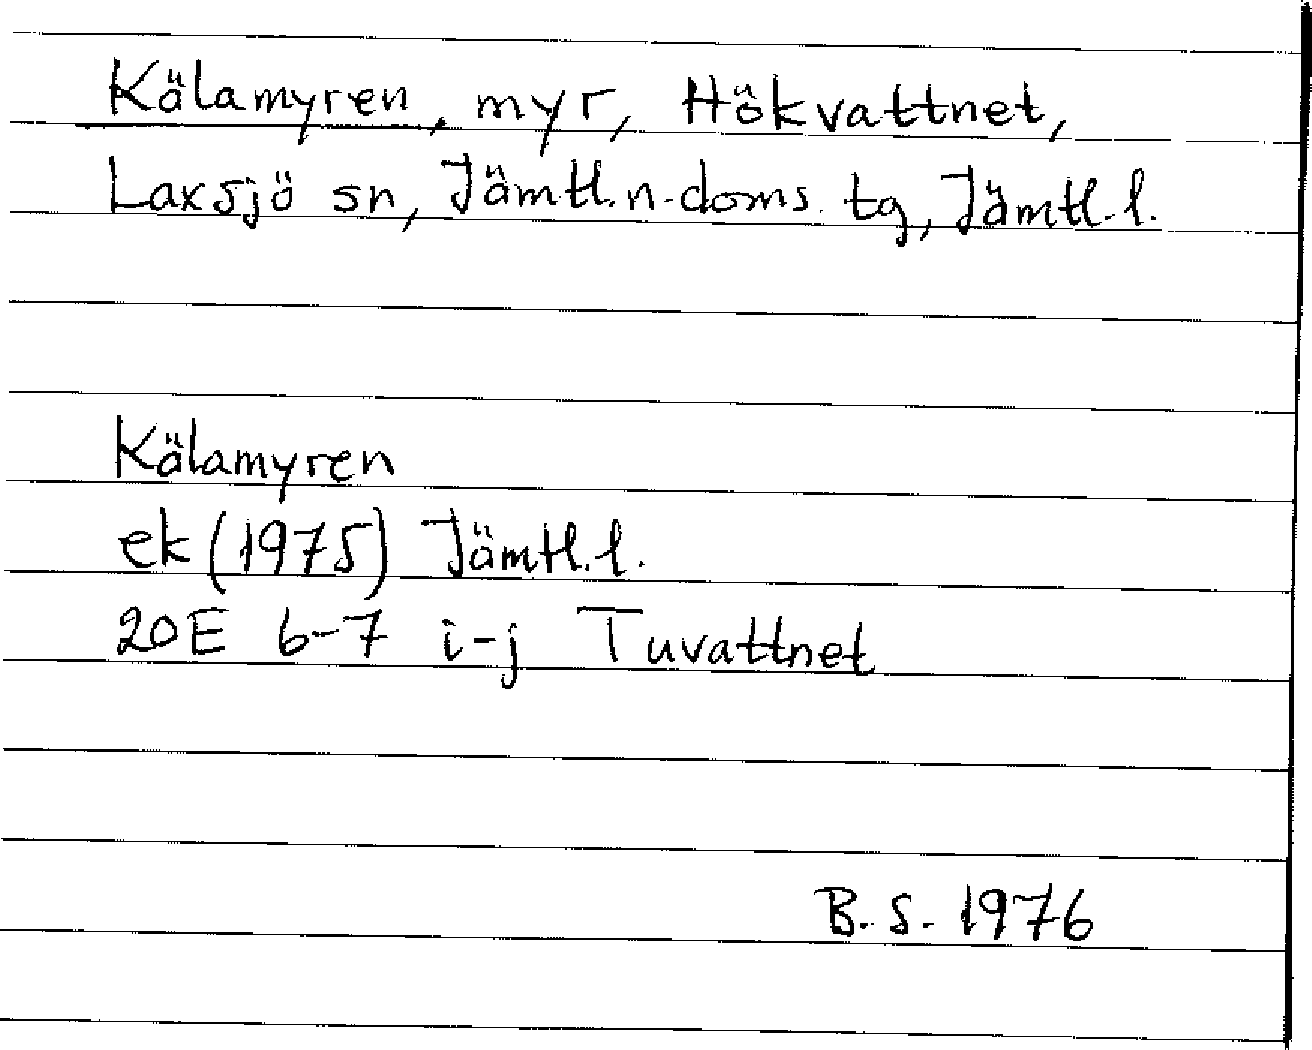 Kälamyren, myr, Hökvattnet,
Laxsjö sn, Jämtl.n.doms. tg, Jämtl.l.
Kälamyren
ek (1975) Jämtl.l.
20E 6-7 i-j Tuvattnet
B.S. 1976